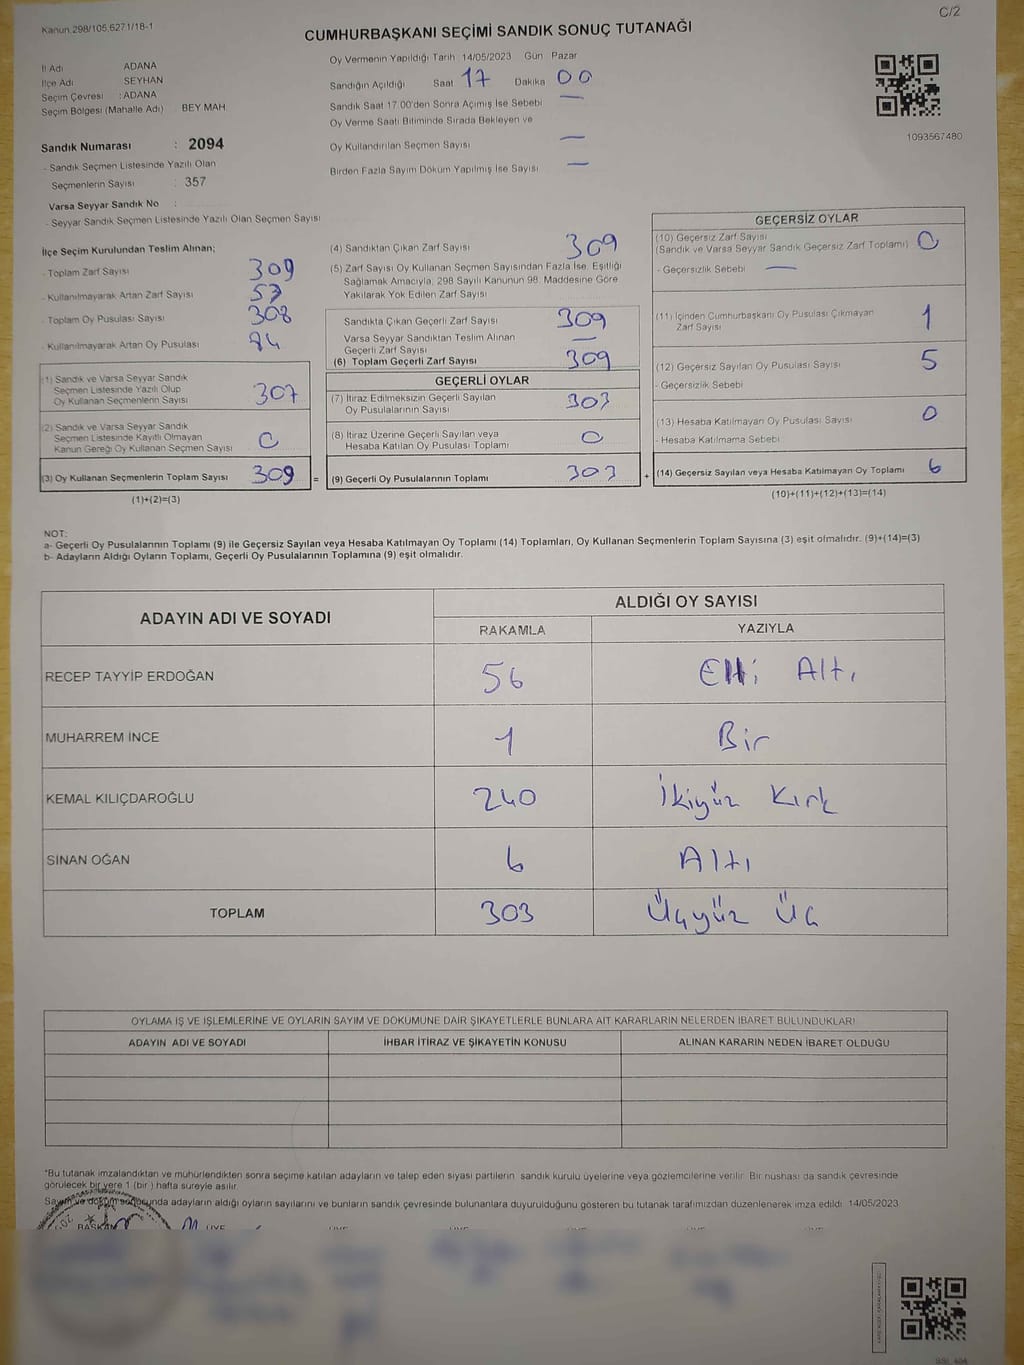 C/2
Kanun 298/105,6271/18-1
CUMHURBAŞKANI SEÇİMİ SANDIK SONUÇ TUTANAĞI
İl Adı ADANA
İlçe Adı SEYHAN
Seçim Çevresi : ADANA
Seçim Bölgesi (Mahalle Adı) BEY MAH
Sandık Numarası : 2094
- Sandık Seçmen Listesinde Yazılı Olan
Seçmenlerin Sayısı : 357
Varsa Seyyar Sandık No :
- Seyyar Sandık Seçmen Listesinde Yazılı Olan Seçmen Sayısı
Oy Vermenin Yapıldığı Tarih : 14/05/2023 Gün Pazar
Sandığın Açıldığı Saat 17 Dakika 00
Sandık Saat 17.00'den Sonra Açımış İse Sebebi —
Oy Verme Saati Bitiminde Sırada Bekleyen ve
Oy Kullandırılan Seçmen Sayısı —
Birden Fazla Sayım Döküm Yapılmış İse Sayısı —
1093567480
İlçe Seçim Kurulundan Teslim Alınan;
- Toplam Zarf Sayısı 309
- Kullanılmayarak Artan Zarf Sayısı 57
- Toplam Oy Pusulası Sayısı 308
- Kullanılmayarak Artan Oy Pusulası 84
(1) Sandık ve Varsa Seyyar Sandık
Seçmen Listesinde Yazılı Olup
Oy Kullanan Seçmenlerin Sayısı 307
(2) Sandık ve Varsa Seyyar Sandık
Seçmen Listesinde Kayıtlı Olmayan
Kanun Gereği Oy Kullanan Seçmen Sayısı 0
(3) Oy Kullanan Seçmenlerin Toplam Sayısı 309 =
(1)+(2)=(3)
(4) Sandıktan Çıkan Zarf Sayısı 309
(5) Zarf Sayısı Oy Kullanan Seçmen Sayısından Fazla İse, Eşitliği
Sağlamak Amacıyla, 298 Sayılı Kanunun 98. Maddesine Göre
Yakılarak Yok Edilen Zarf Sayısı
Sandıkta Çıkan Geçerli Zarf Sayısı 309
Varsa Seyyar Sandıktan Teslim Alınan
Geçerli Zarf Sayısı —
(6) Toplam Geçerli Zarf Sayısı 309
GEÇERLİ OYLAR
(7) İtiraz Edilmeksizin Geçerli Sayılan
Oy Pusulalarının Sayısı 303
(8) İtiraz Üzerine Geçerli Sayılan veya
Hesaba Katılan Oy Pusulası Toplamı 0
(9) Geçerli Oy Pusulalarının Toplamı 303 +
GEÇERSİZ OYLAR
(10) Geçersiz Zarf Sayısı
(Sandık ve Varsa Seyyar Sandık Geçersiz Zarf Toplamı) 0
- Geçersizlik Sebebi —
(11) İçinden Cumhurbaşkanı Oy Pusulası Çıkmayan
Zarf Sayısı 1
(12) Geçersiz Sayılan Oy Pusulası Sayısı 5
- Geçersizlik Sebebi
(13) Hesaba Katılmayan Oy Pusulası Sayısı 0
- Hesaba Katılmama Sebebi
(14) Geçersiz Sayılan veya Hesaba Katılmayan Oy Toplamı 6
(10)+(11)+(12)+(13)=(14)
NOT:
a- Geçerli Oy Pusulalarının Toplamı (9) ile Geçersiz Sayılan veya Hesaba Katılmayan Oy Toplamı (14) Toplamları, Oy Kullanan Seçmenlerin Toplam Sayısına (3) eşit olmalıdır. (9)+(14)=(3)
b- Adayların Aldığı Oyların Toplamı, Geçerli Oy Pusulalarının Toplamına (9) eşit olmalıdır.
ADAYIN ADI VE SOYADI ALDIĞI OY SAYISI
RAKAMLA YAZIYLA
RECEP TAYYİP ERDOĞAN 56 Elli Altı
MUHARREM İNCE 1 Bir
KEMAL KILIÇDAROĞLU 240 İkiyüz Kırk
SİNAN OĞAN 6 Altı
TOPLAM 303 Üçyüz Üç
OYLAMA İŞ VE İŞLEMLERİNE VE OYLARIN SAYIM VE DÖKÜMÜNE DAİR ŞİKAYETLERLE BUNLARA AİT KARARLARIN NELERDEN İBARET BULUNDUKLARI
ADAYIN ADI VE SOYADI İHBAR İTİRAZ VE ŞİKAYETİN KONUSU ALINAN KARARIN NEDEN İBARET OLDUĞU
*Bu tutanak imzalandıktan ve mühürlendikten sonra seçime katılan adayların ve talep eden siyasi partilerin sandık kurulu üyelerine veya gözlemcilerine verilir. Bir nüshası da sandık çevresinde
görülecek bir yere 1 (bir) hafta süreyle asılır.
Sayım ve döküm sonucunda adayların aldığı oyların sayılarını ve bunların sandık çevresinde bulunanlara duyurulduğunu gösteren bu tutanak tarafımızdan düzenlenerek imza edildi. 14/05/2023
BAŞKAN ÜYE